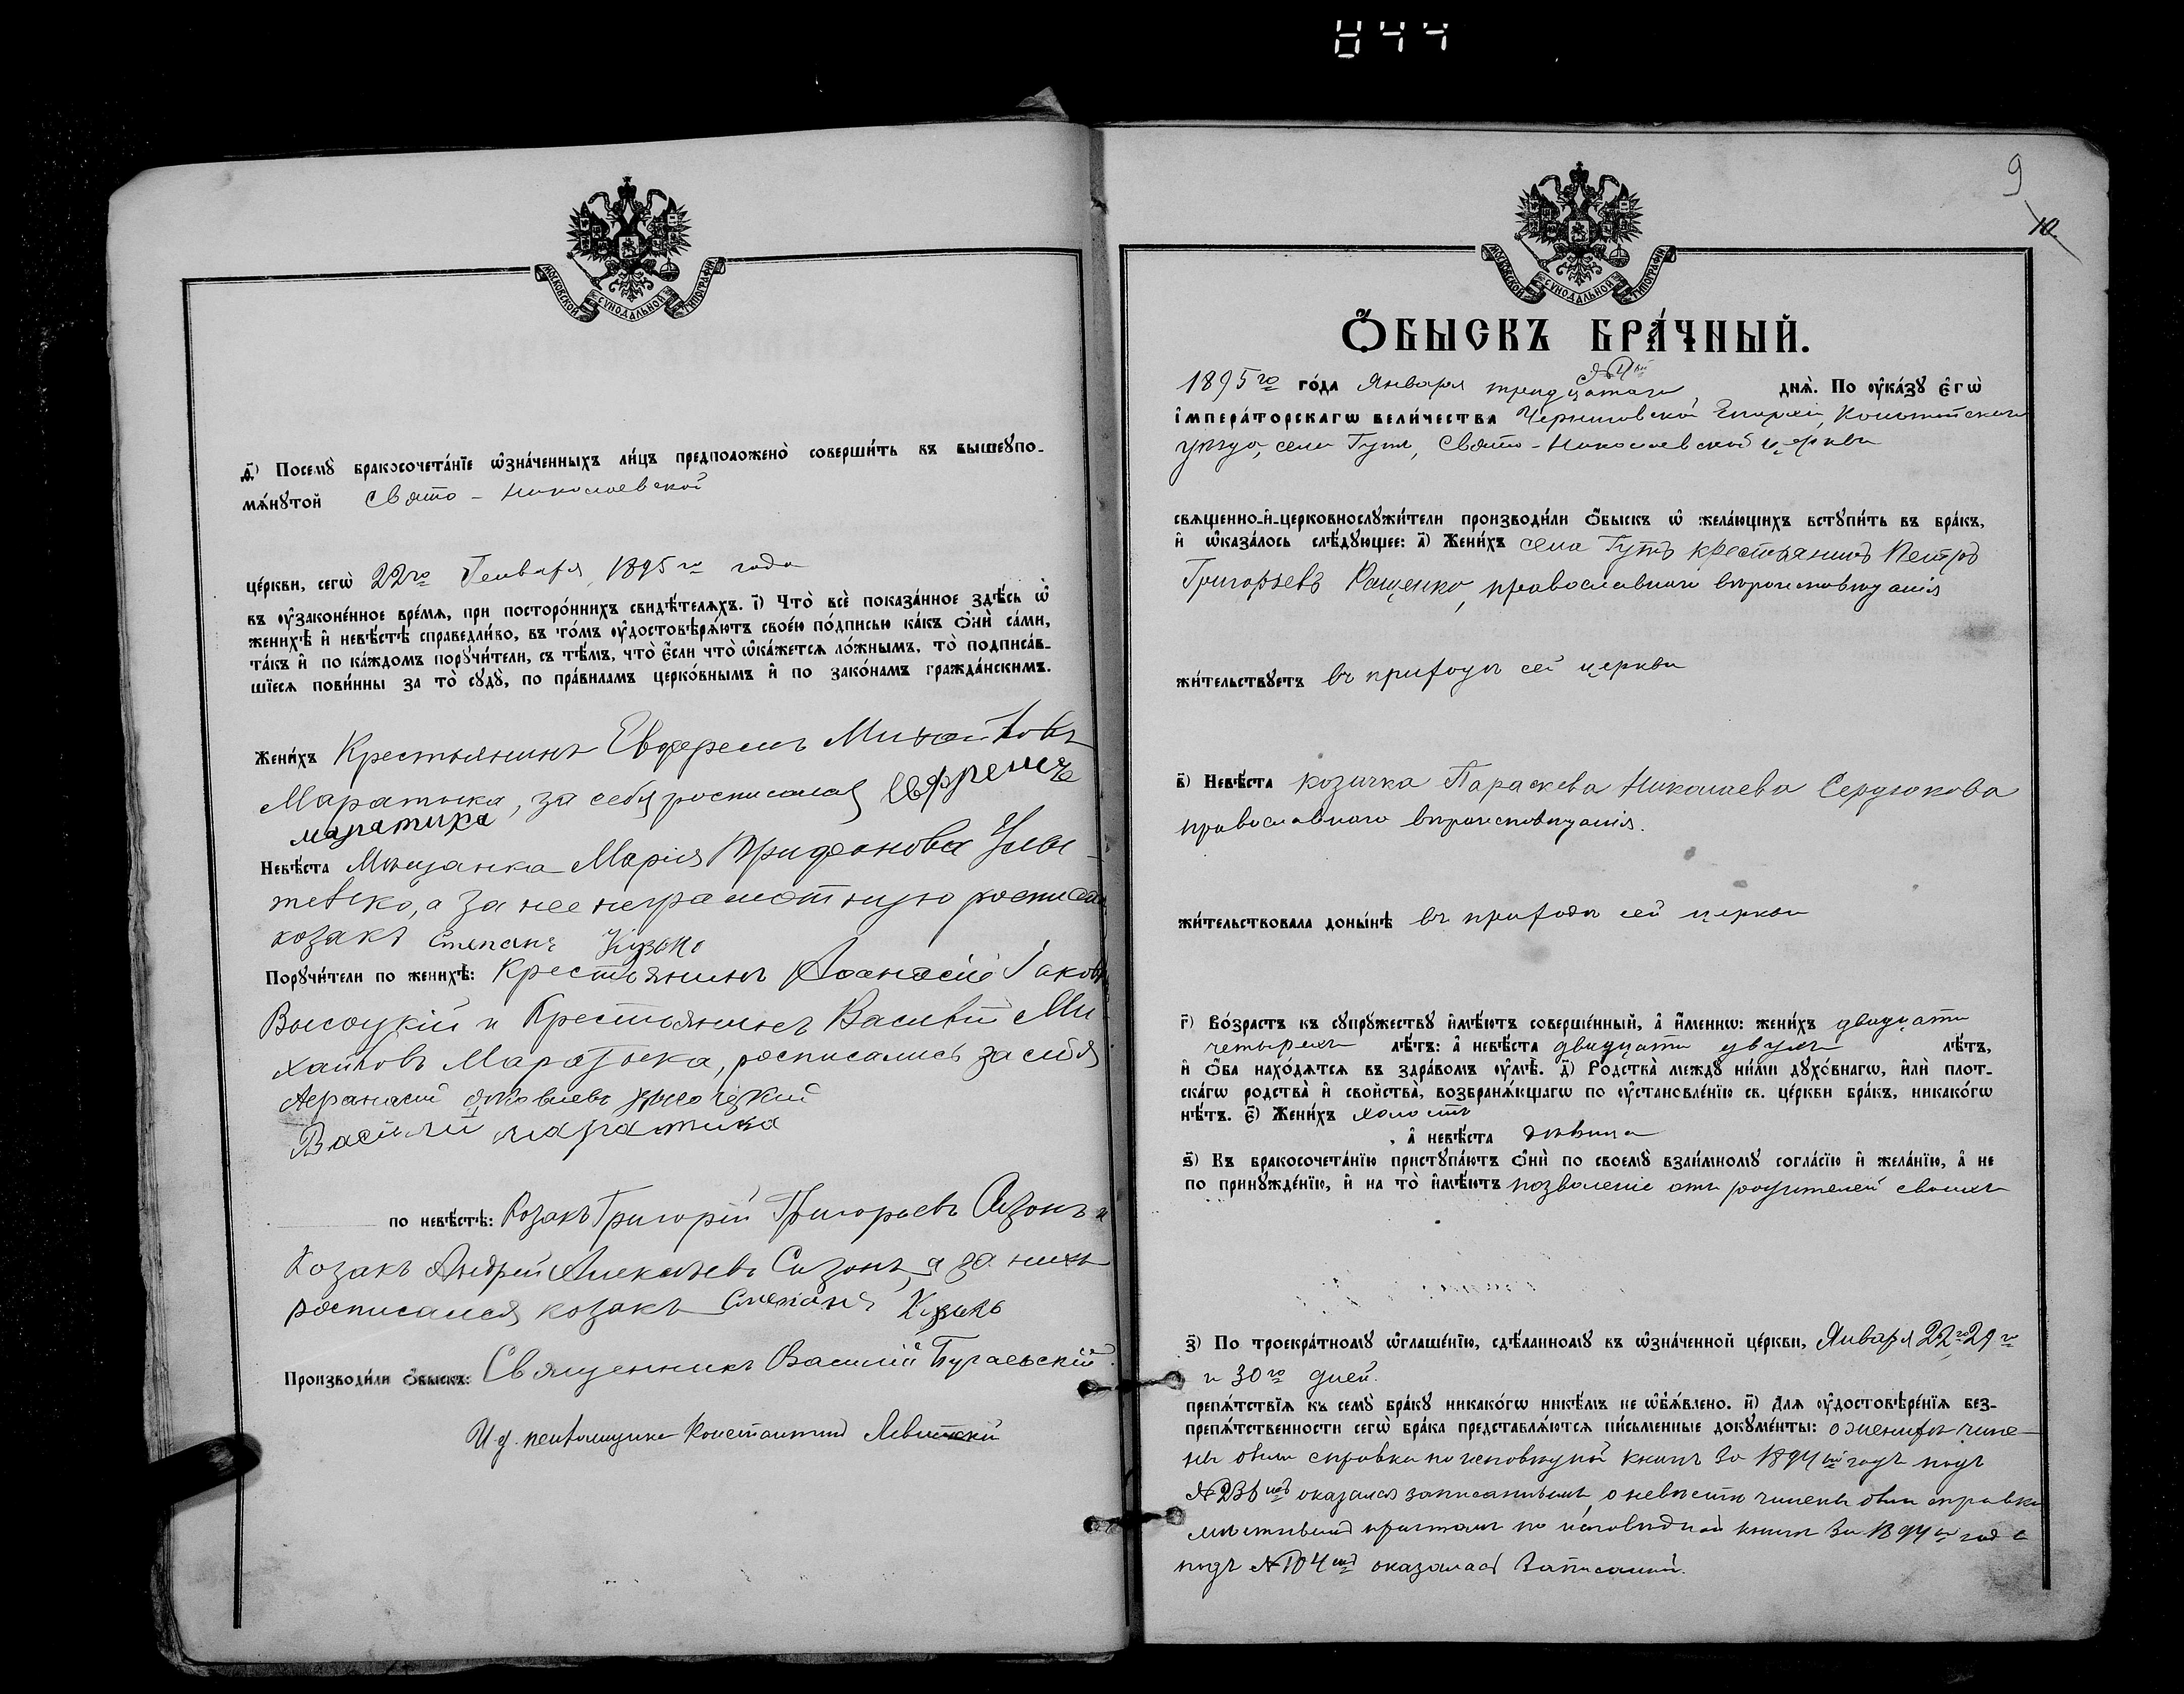 844
МОСКОВСКОЙ СУНОДАЛЬНОЙ ТИПОГРАФІИ
д҃) Посемꙋ̀ бракосочета́нїе ѡ҆зна́ченныхъ ли́цъ предположено̀ соверши́ть въ вышеꙋпо-
мѧ́нꙋтой Свято-Николаевской
це́ркви, сегѡ̀ 22го Генваря, 1895го года
въ ᲂу҆законе́нное вре́мѧ, при посторо́ннихъ свидѣ́телѧхъ. і҃) Что̀ всѐ пока́занное здѣ́сь ѡ҆
женихѣ̀ и҆ невѣ́стѣ справедли́во, въ то́мъ ᲂу҆достовѣрѧ́ютъ свое́ю по́дписью ка́къ ѻ҆нѝ са́ми,
та́къ и҆ по ка́ждомъ порꙋчи́тели, съ тѣ́мъ, что̀ є҆́сли что̀ ѡ҆ка́жетсѧ ло́жнымъ, то̀ подписа́в-
шїесѧ пови́нны за то̀ сꙋдꙋ̀, по пра́виламъ церко́внымъ и҆ по зако́намъ гражда́нскимъ.
Жени́хъ Крестьянинъ Евфремъ Михайловъ
Маратыка, за себя росписался Ефремъ
маратика
Невѣ́ста Мѣщанка Марія
а за нее неграмотную росписался
козакъ Степанъ Кузько
Порꙋчи́тели по женихѣ̀: Крестьянинъ Аѳанасій Іаковл
Высоцкій и Крестьянинъ Василій Ми
хайловъ Маратыка, росписались за себя
Афанасий яковлевъ высоцкий
Василий маратика
по невѣ́стѣ: Козакъ Григорій Григорьевъ Сизонъ и
Козакъ Андрей Алексѣевъ Сизонъ, а за нихъ
росписался козакъ Степанъ Кузько
Производи́ли ѻ҆́быскъ: Священникъ Василій Бугаевскій
И. д. псаломщика Константинъ Левитскій
9
10
МОСКОВСКОЙ СУНОДАЛЬНОЙ ТИПОГРАФІИ
Ѻ҆́БЫСКЪ БРА́ЧНЫЙ.
1895го го́да Января тридцатаго днѧ̀. По ᲂу҆ка́зꙋ є҆гѡ̀
і҆мпера́торскагѡ вели́чества Черниговской Епархіи, Конотопскаго
уѣзда, села Гутъ, Свято-Николаевской церкви
свѧщенно-и҆-церковнослꙋжи́тели производи́ли ѻ҆́быскъ ѡ҆ жела́ющихъ встꙋпи́ть въ бра́къ,
и҆ ѡ҆каза́лось слѣ́дꙋющее: а҃) Жени́хъ села Гутъ крестьянинъ Петръ
Григорьевъ Ращенко, православнаго вѣроисповѣданія
жи́тельствꙋетъ въ приходѣ сей церкви
в҃) Невѣ́ста козачка Параскева Николаева Сердюкова
православнаго вѣроисповѣданія.
жи́тельствовала доны́нѣ въ приходѣ сей церкви
г҃) Во́зрастъ къ сꙋпрꙋ́жествꙋ и҆мѣ́ютъ соверше́нный, а҆ и҆́меннѡ: жени́хъ двадцати
четырехъ лѣ́тъ: а҆ невѣ́ста двадцати двухъ лѣ́тъ,
и҆ ѻ҆́ба нахо́дѧтсѧ въ здра́вомъ ᲂу҆мѣ̀. д҃) Родства̀ междꙋ ни́ми дꙋхо́внагѡ, и҆лѝ плот-
ска́гѡ родства̀ и҆ свойства̀, возбранѧ́ющагѡ по ᲂу҆становле́нїю св. це́ркви бра́къ, никако́гѡ
нѣ́тъ. є҃) Жени́хъ холостъ
, а҆ невѣ́ста дѣвица
ѕ҃) Къ бракосочета́нїю пристꙋпа́ютъ ѻ҆нѝ по своемꙋ̀ взаи́мномꙋ согла́сїю и҆ жела́нїю, а҆ не
по принꙋжде́нїю, и҆ на то̀ и҆мѣ́ютъ позволеніе отъ родителей своихъ
з҃) По троекра́тномꙋ ѡ҆глаше́нїю, сдѣ́ланномꙋ въ ѡ҆зна́ченной це́ркви, Января 22го 29го
и 30го дней.
препѧ́тствїѧ къ семꙋ̀ бра́кꙋ никако́гѡ никѣ́мъ не ѡ҆б̾ѧ́влено. и҃) Длѧ ᲂу҆достовѣре́нїѧ без-
препѧ́тственности сегѡ̀ бра́ка представлѧ́ютсѧ пи́сьменные докꙋме́нты: о женихѣ чине-
на была справка по исповѣдной книгѣ за 1894й годъ подъ
№236мъ оказался записаннымъ, о невѣстѣ чинена была справка
мѣстнымъ притомъ по исповѣдной книгѣ за 1894й года
подъ №104мъ оказалась записанной.